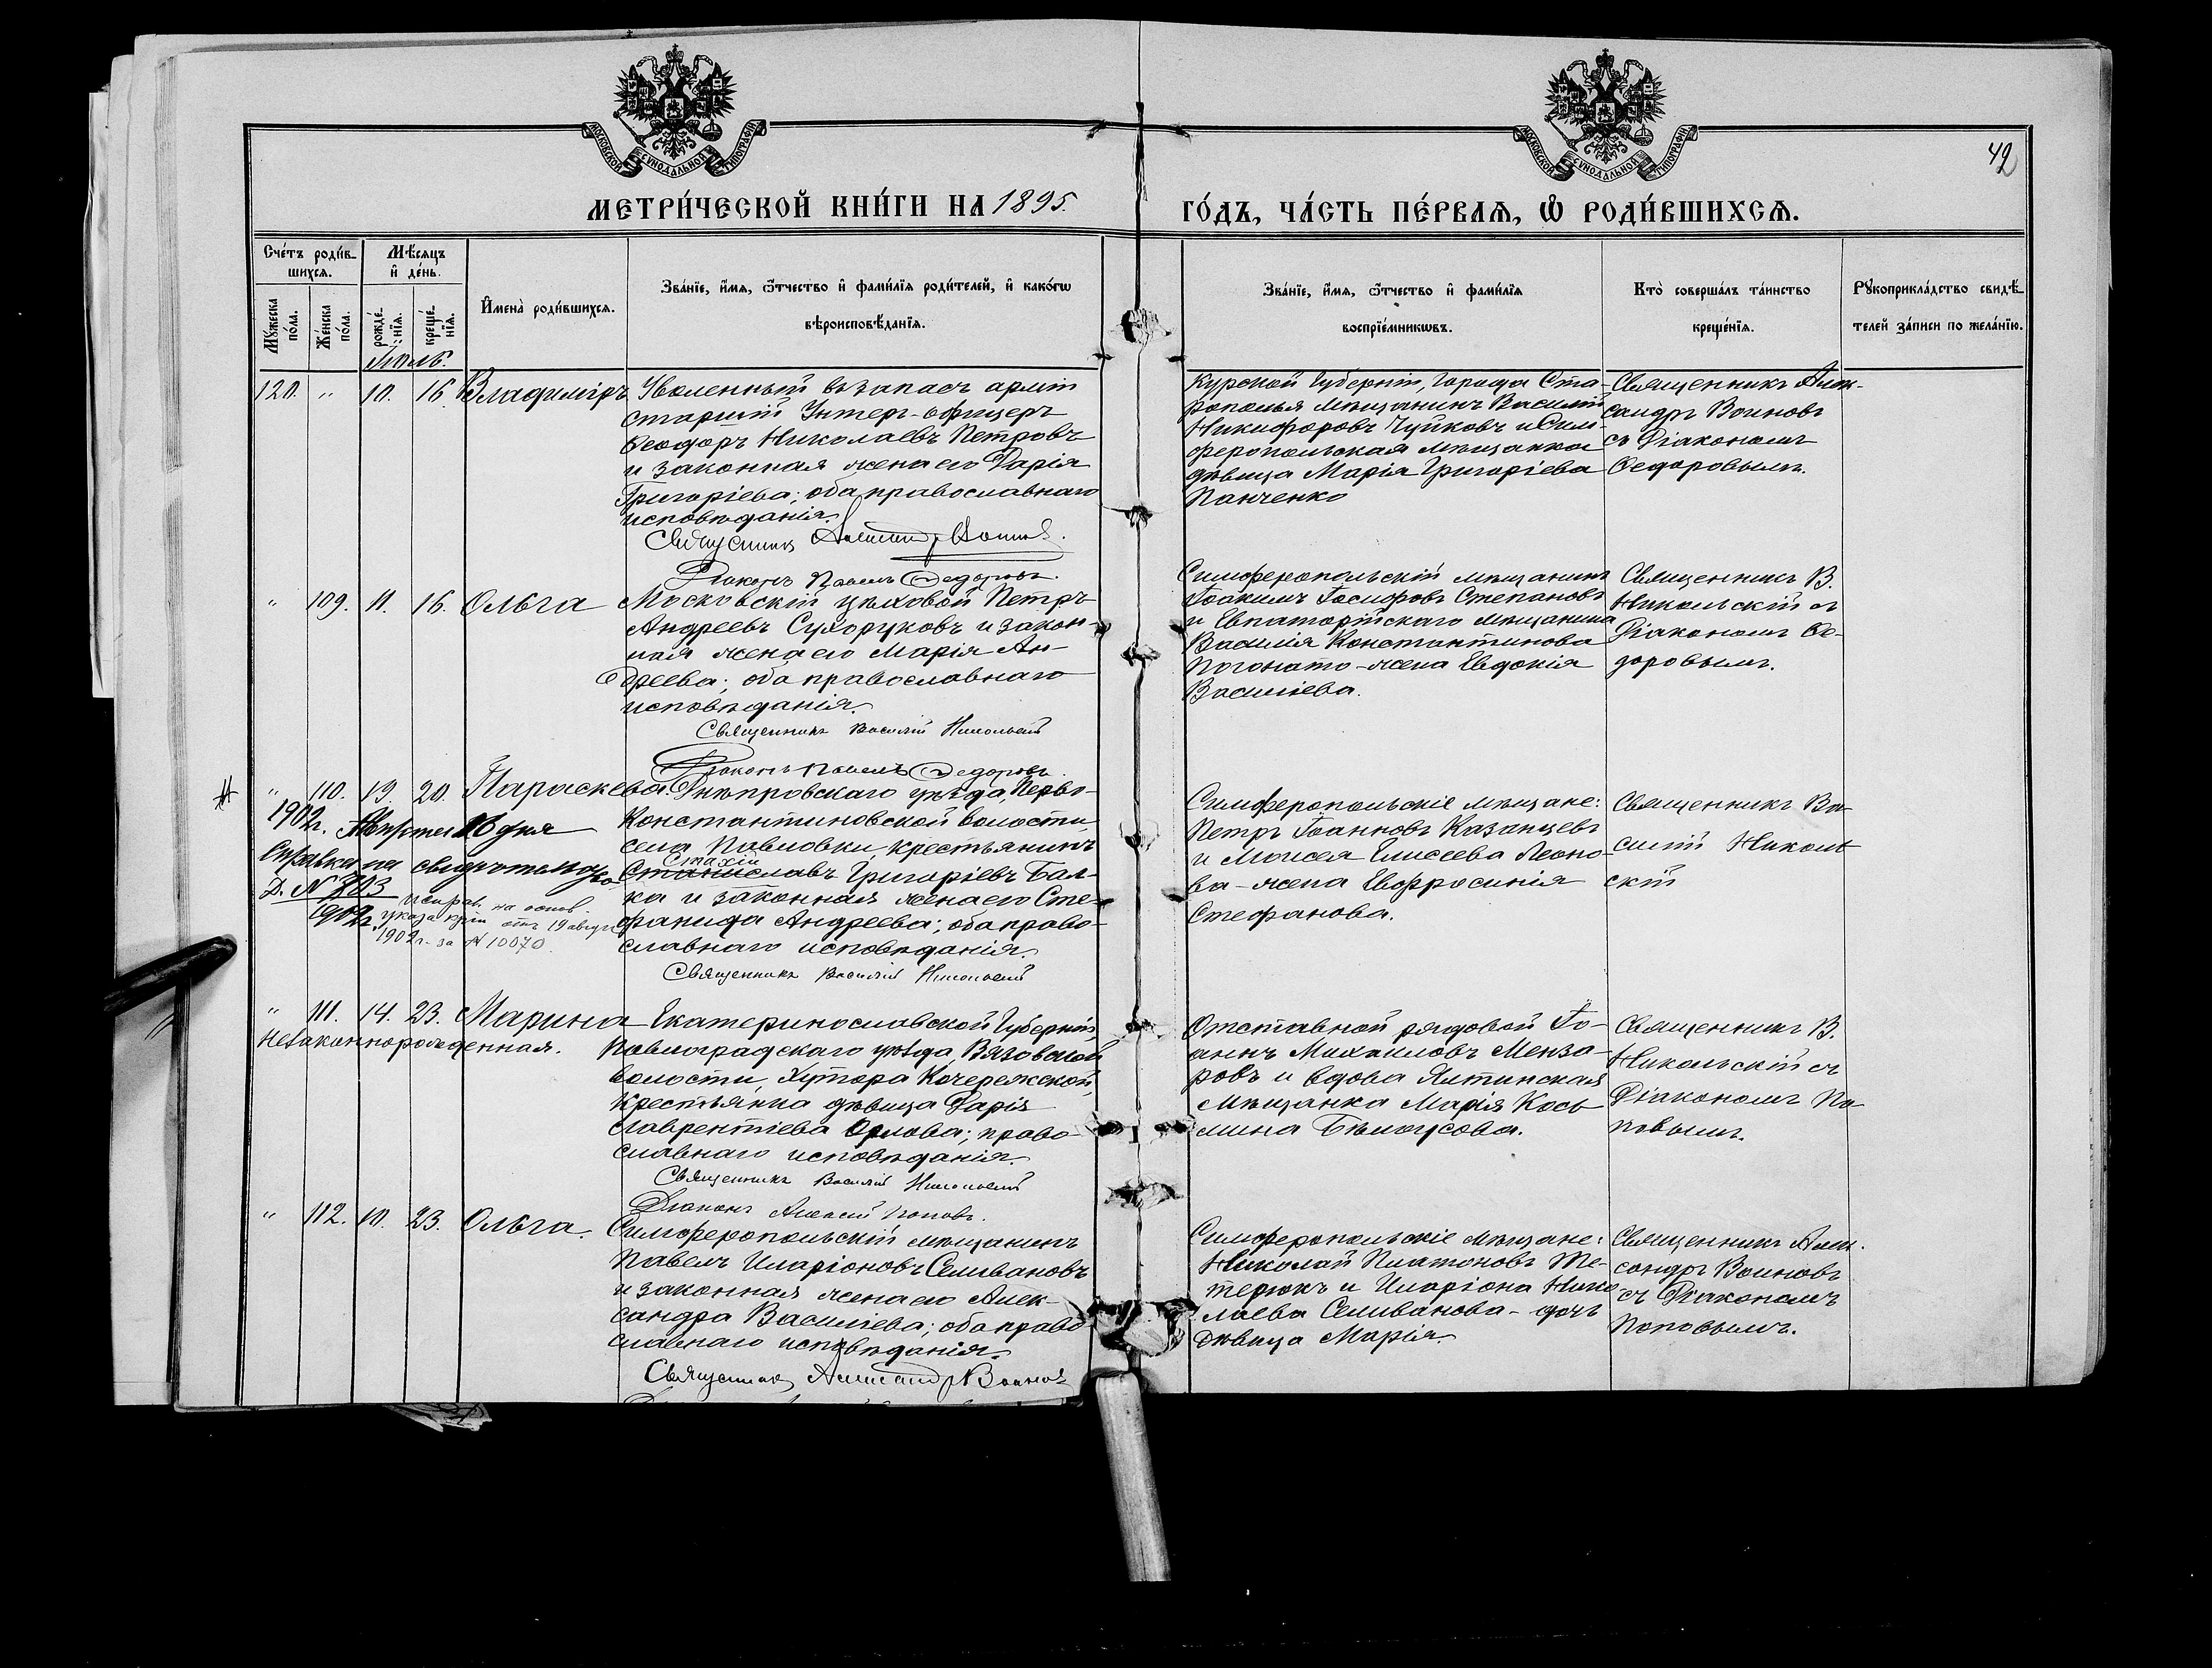 МОСКОВСКОЙ СѴНОДАЛЬНОЙ ТИПОГРАФІИ
МОСКОВСКОЙ СѴНОДАЛЬНОЙ ТИПОГРАФІИ
42
МЕТРИ́ЧЕСКОЙ КНИ́ГИ НА 1895.
ГО́ДЪ, ЧА́СТЬ ПЕ́РВАѦ, Ѽ РОДИ́ВШИХСѦ.
Сче́тъ роди́в-
шихсѧ.
Мѣ́сѧцъ
и҆ де́нь.
Мꙋ́жеска по́ла.
Же́нска по́ла.
рожде́-нїѧ.
креще́-нїѧ.
И҆мена̀ роди́вшихсѧ.
Зва́нїе, и҆́мѧ, ѻ҆́тчество и҆ фами́лїѧ роди́телей, и҆ како́гѡ
вѣроисповѣ́данїѧ.
Зва́нїе, и҆́мѧ, ѻ҆́тчество и҆ фами́лїѧ
воспрїе́мникѡвъ.
Кто̀ соверша́лъ та́инство
креще́нїѧ.
Рꙋкоприкла́дство свидѣ́-
телей за́писи по жела́нїю.
Іюль.
120. " 10. 16. Владиміръ
Уволенный въ запасъ арміи
старшій Унтеръ-офицеръ
Ѳеодоръ Николаевъ Петровъ
и законная жена его Дарія
Григоріева; оба православнаго
исповѣданія.
Священникъ Александръ Воиновъ.
Діаконъ Павелъ Ѳедоровъ.
Курской Губерніи, города Ста-
рополья мѣщанинъ Василій
Никифоровъ Чуйковъ и Сим-
феропольская мѣщанка
дѣвица Марія Григоріева
Панченко
Священникъ Алек-
сандръ Воиновъ
съ Діакономъ
Ѳедоровымъ.
" 109. 11. 16. Ольга
Московскій цѣховой Петръ
Андреевъ Сухоруковъ и закон-
ная жена его Марія Ан-
дреева; оба православнаго
исповѣданія.
Священникъ Василій Никольскій
Діаконъ Павелъ Ѳедоровъ
Симферопольскій мѣщанинъ
Іоакимъ Іосифовъ Степановъ
и Евпаторійскаго мѣщанина
Василія Константинова
Погонато-жена Евдокія
Василіева.
Священникъ В.
Никольскій съ
Діакономъ Ѳе-
доровымъ.
" 110. 19. 20. Параскева
1902 г. Августа 16 дня
Справка на свидѣтельство
Д. № 703
1902 г.
исправ. на основ.
указа крѣи отъ 19 авгус
1902 г. за № 10070.
Днѣпровскаго уѣзда, Перво-
константиновской волости,
села Павловки, крестьянинъ
Стахій
Станиславъ Григоріевъ Бал-
ка и законная жена его Сте-
фанида Андреева; оба право-
славнаго исповѣданія.
Священникъ Василій Никольскій
Симферопольскіе мѣщане:
Петръ Іоанновъ Казанцевъ
и Моисея Елисеева Леоно-
ва-жена Евфросинія
Стефанова.
Священникъ Ва-
силій Николь
скій
" 111. 14. 23. Марина
незаконнорожденная.
Екатеринославской Губерніи,
Павлоградскаго уѣзда, Вязовской
волости, Хутора Кочережской,
крестьянка дѣвица Дарія
Лаврентіева Орлова; право-
славнаго исповѣданія.
Священникъ Василій Никольскій
Діаконъ Алексій Поповъ.
Отставной рядовой Іо-
аннъ Михаиловъ Мензо-
ровъ и вдова Ялтинская
мѣщанка Марія Кось-
мина Бѣлоусова.
Священникъ В.
Никольскій съ
Діакономъ По-
повымъ.
" 112. 10. 23. Ольга.
Симферопольскій мѣщанинъ
Павелъ Иларіоновъ Селивановъ
и законная жена его Алек-
сандра Василіева; оба право
славнаго исповѣданія.
Священникъ Александръ Воиновъ
Симферопольскіе мѣщане:
Николай Платоновъ Те-
терюкъ и Иларіона Нико
лаева Селиванова-дочь
дѣвица Марія.
Священникъ Алек.
сандръ Воиновъ
съ Діакономъ
Поповымъ.